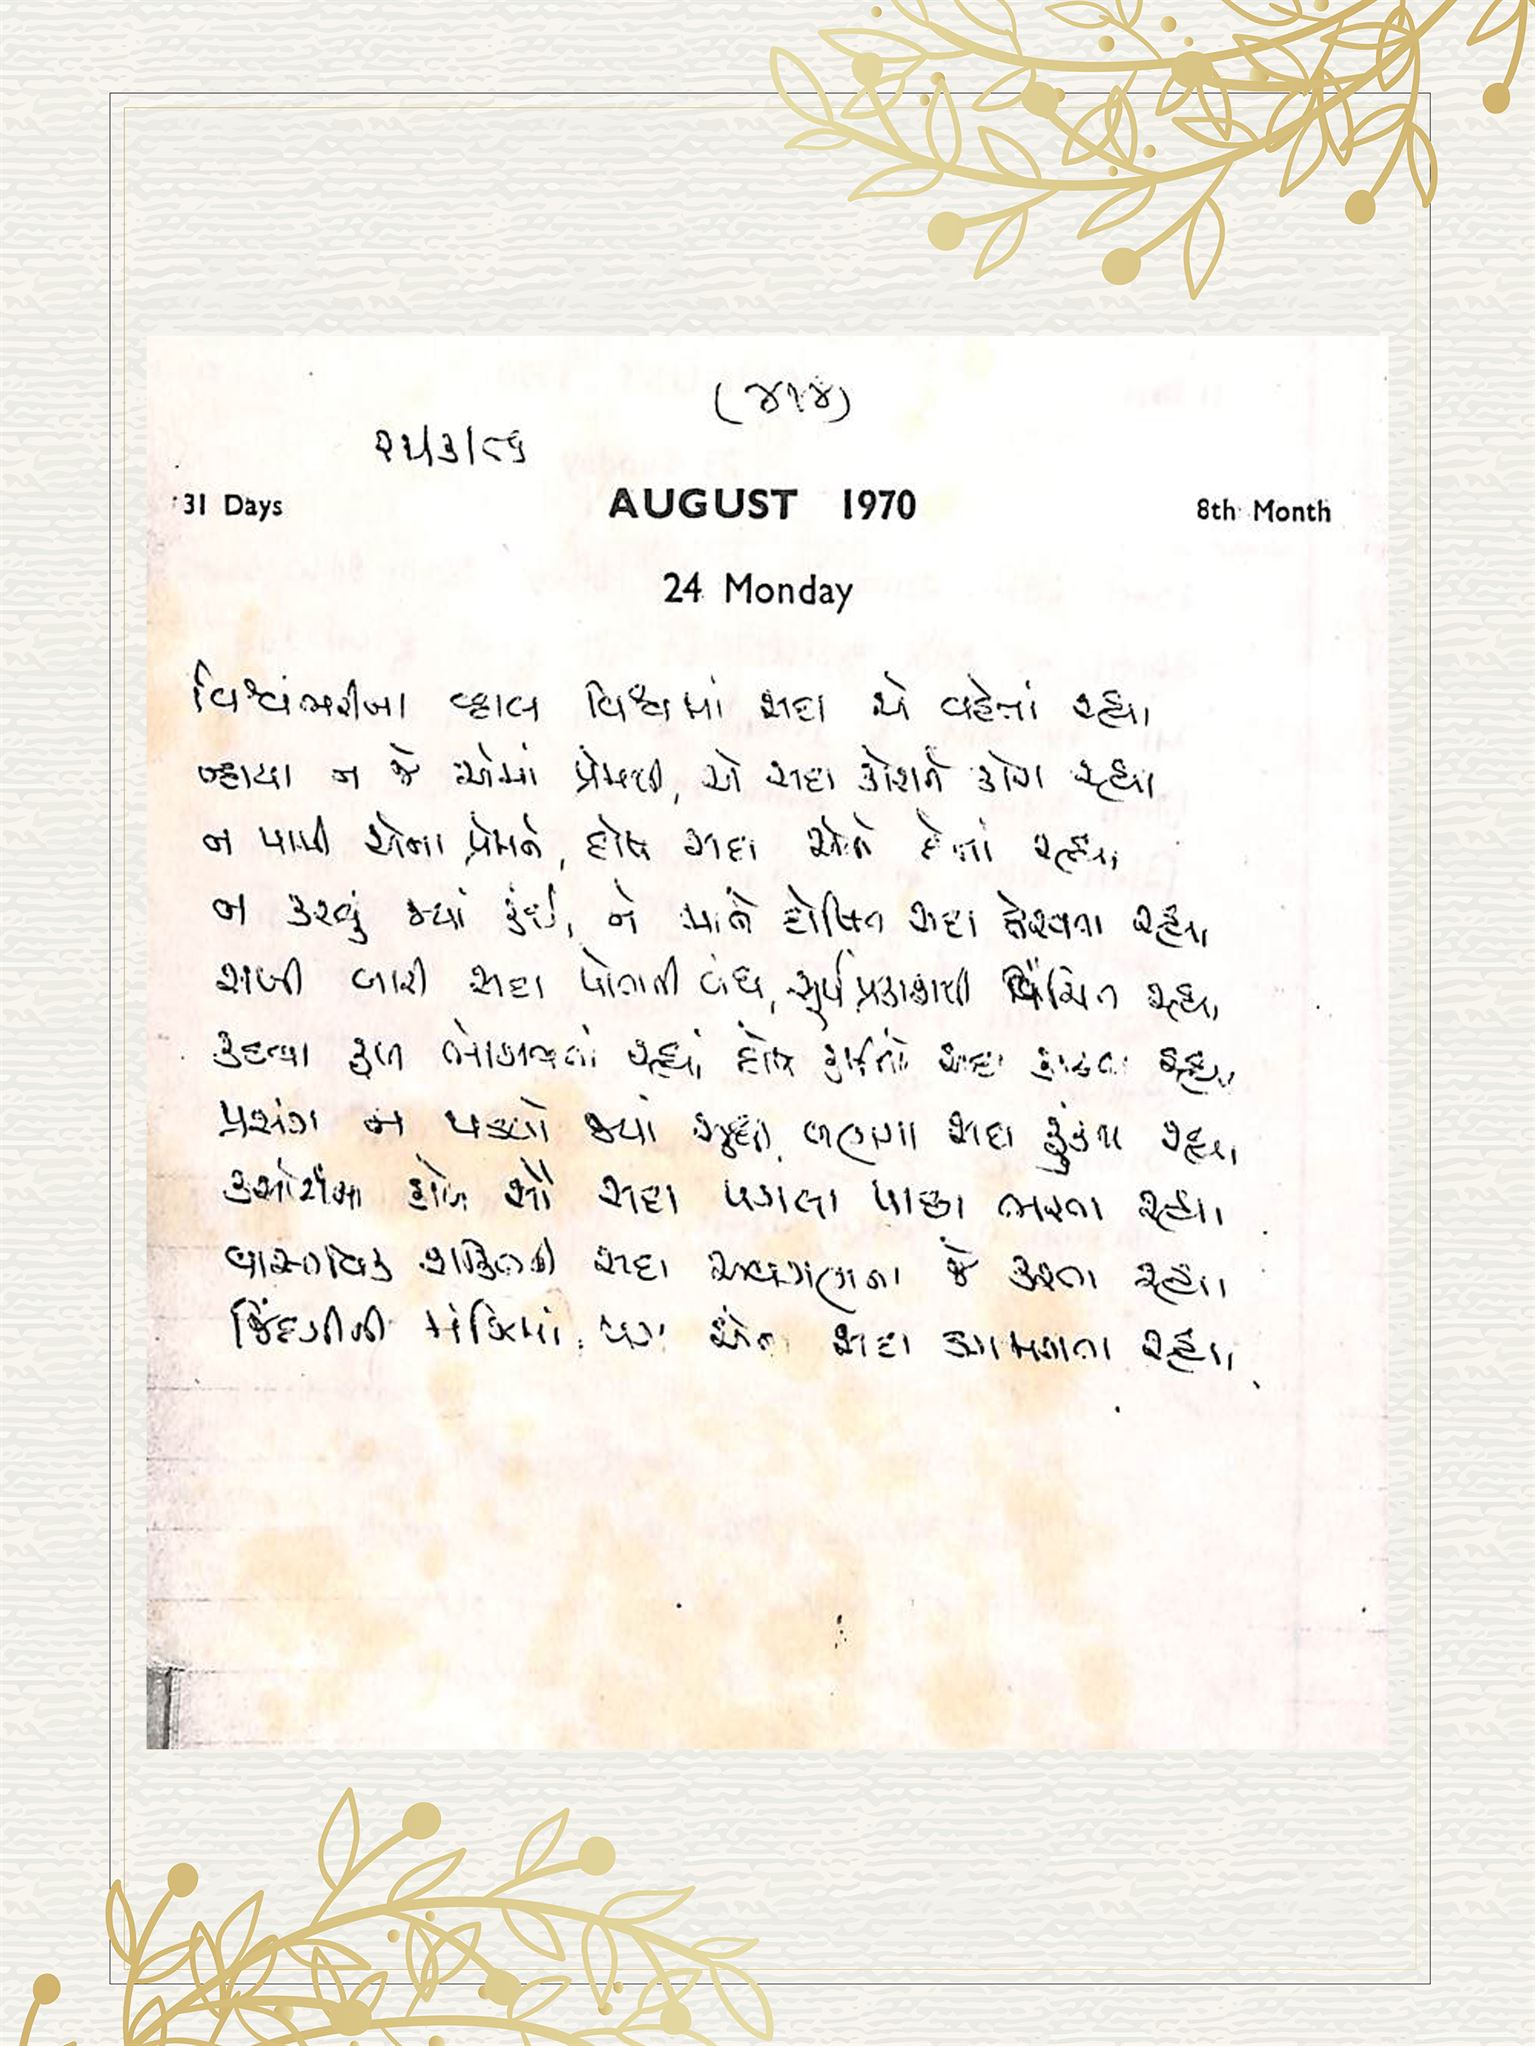 (૪૧૪)
૨૫/૩/૮૬
31 Days AUGUST 1970 8th Month
24 Monday
વિશ્વંભરીના વ્હાલ વિશ્વમાં સદા એ વહેતાં રહ્યા
ન્હાયા ન જે એમાં પ્રેમથી, એ સદા કોરાને કોરા રહ્યા
ન પામી એના પ્રેમને, દોષ સદા એને દેતાં રહ્યા
ન કરવું જ્યાં કંઈ, ને માને દોષિત સદા ઠેરવતા રહ્યા
રાખી બારી સદા પોતાની બંધ, સૂર્યપ્રકાશથી વંચિત રહ્યા
ફળ ભોગવતાં રહ્યાં, દોષ સદા રહ્યા
પ્રસંગ ન પડયો જ્યાં સદા રહ્યા
સૌ સદા પગલા પાછા ભરતા રહ્યા
વાસ્તવિક શક્તિની સદા અવગણના જે કરતા રહ્યા
જિંદગીની મંઝિલમાં, પગ એના સદા ડગમગતા રહ્યા